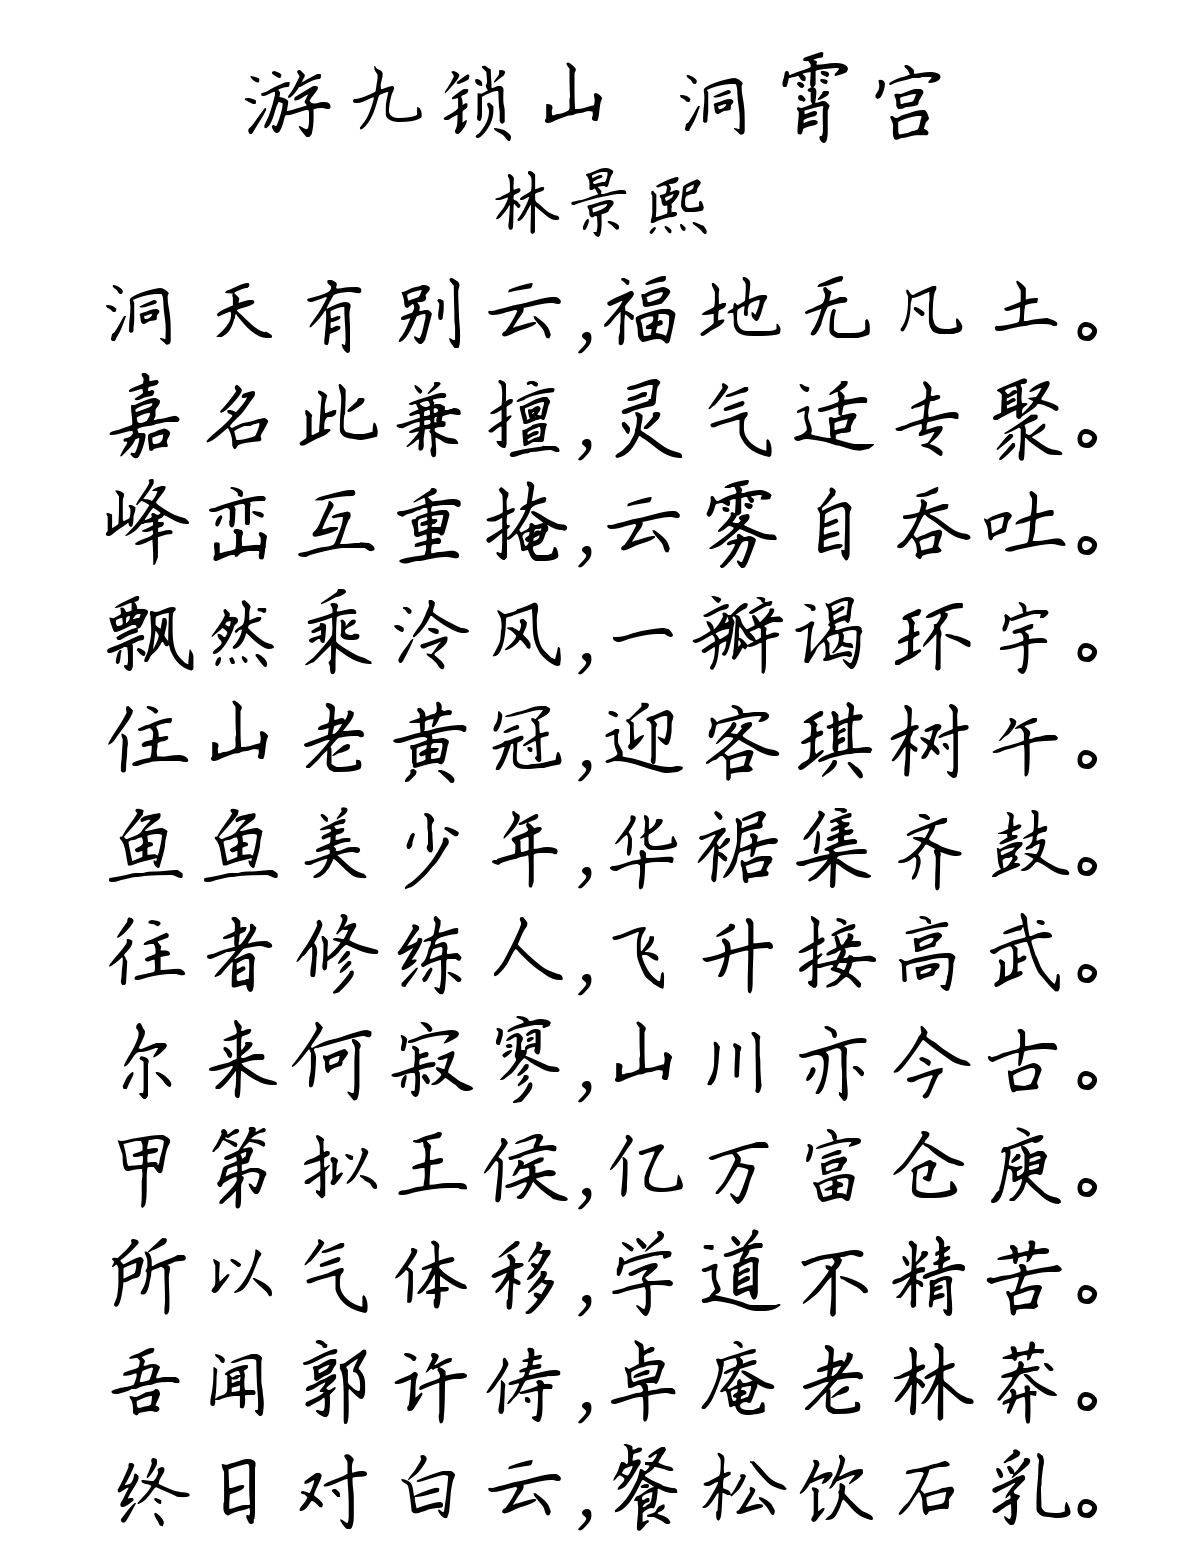 游九锁山 洞霄宫
林景熙
洞天有别云,福地无凡土。
嘉名此兼擅,灵气适专聚。
峰峦互重掩,云雾自吞吐。
飘然乘泠风,一瓣谒环宇。
住山老黄冠,迎客琪树午。
鱼鱼美少年,华裾集齐鼓。
往者修练人,飞升接高武。
尔来何寂寥,山川亦今古。
甲第拟王侯,亿万富仓庾。
所以气体移,学道不精苦。
吾闻郭许俦,卓庵老林莽。
终日对白云,餐松饮石乳。